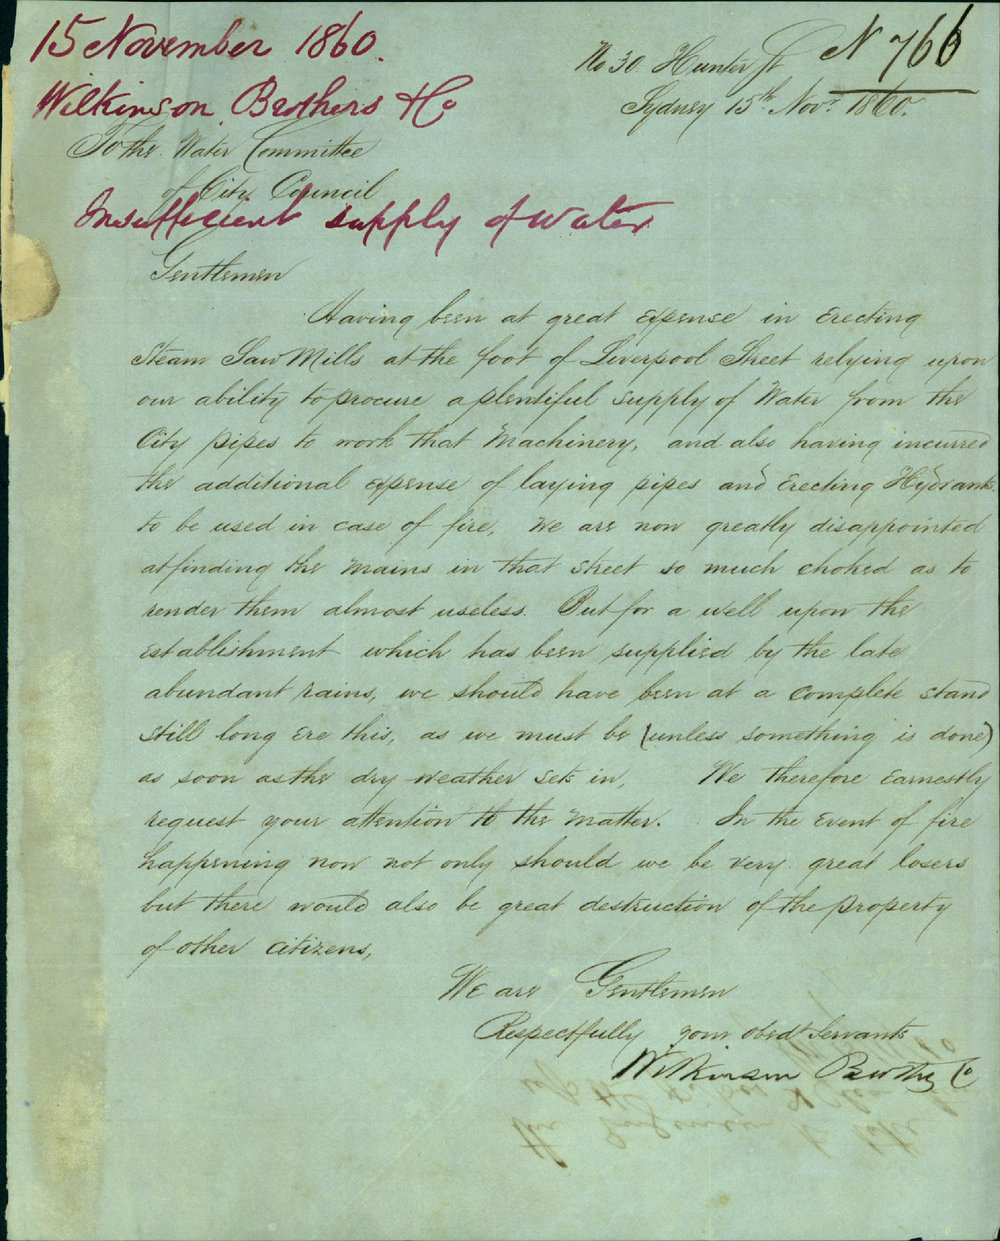 15 November 1860.
No 766
No 30. Hunter St
Wilkinson Brothers & Co
Sydney 15th Novr. 1860.
To the Water Committee
of City Council
Insufficient supply of water
Gentlemen
Having been at great expense in erecting
Steam Saw Mills at the foot of Liverpool Street relying upon
our ability to procure a plentiful supply of Water from the
City pipes to work that Machinery, and also having incurred
the additional expense of laying pipes and erecting Hydrants
to be used in case of fire, we are now greatly disappointed
at finding the mains in that street so much choked as to
render them almost useless. But for a well upon the
establishment which has been supplied by the late
abundant rains, we should have been at a complete stand
still long ere this, as we must be (unless something is done)
as soon as the dry weather sets in, We therefore earnestly
request your attention to the matter. In the event of fire
happening now not only should we be very great losers
but there would also be great destruction of the property
of other citizens,
We are Gentlemen
Respectfully your obedt Servants
Wilkinson Brothrs Co